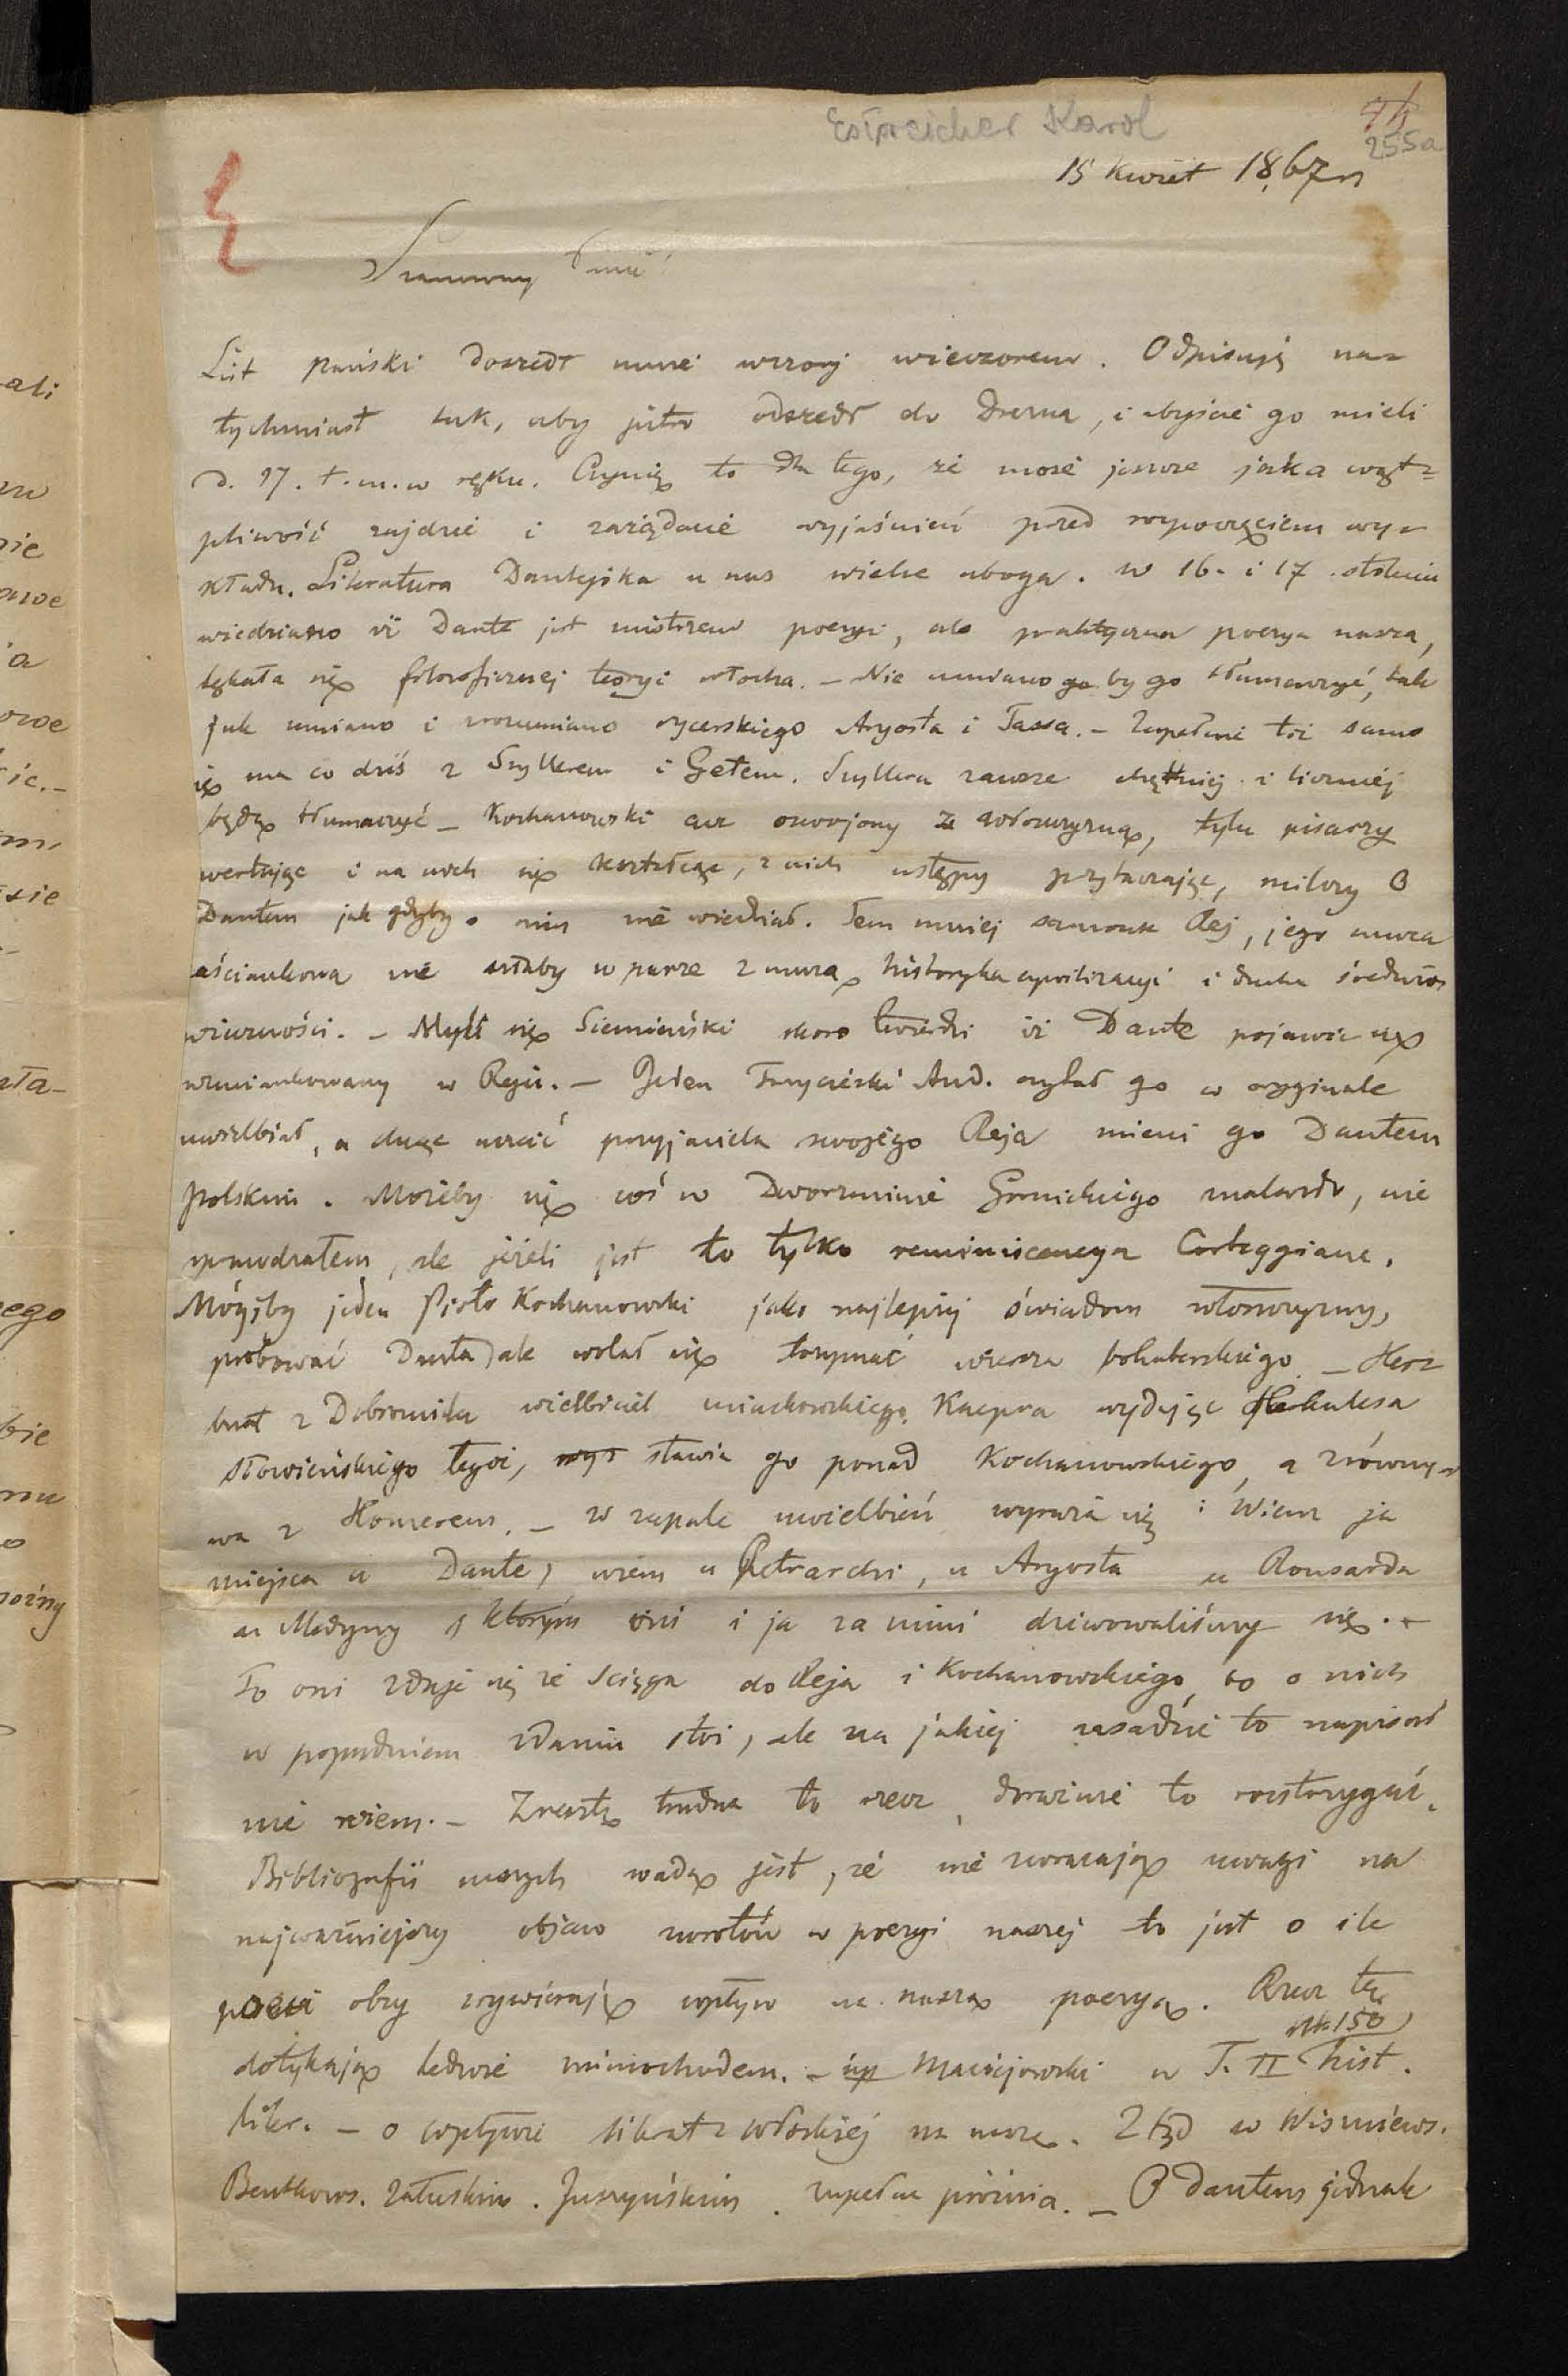 Estreicher Karol
255a
15 Kwiet 1867 r
Szanowny Panie!
List pański doszedł mnie wczoraj wieczorem. Odpisuję na=
tychmiast tak, aby jutro odszedł do Drezna, i abyście go mieli
d. 17. t. m. w ręku. Czynię to dla tego, że może jeszcze jaka wąt=
pliwość zajdzie i zażądanie wyjaśnień przed rozpoczęciem wy=
kładu. Literatura Dantejska u nas wielce uboga. W 16. i 17. stuleciu
wiedziano iż Dante jest mistrzem poezyi, ale praktyczna poezya nasza,
lękała się filozoficznej teoryi włocha. – Nie umiano go by go tłumaczyć, tak
jak umiano i zrozumiano rycerskiego Aryosta i Tassa. – Zupełnie toż samo
się ma co dziś z Szyllerem i Getem. Szyllera zawsze chętniej i liczniej
będą tłumaczyć – Kochanowski acz oswojony ze włoszczyzną, tylu pisarzy
wertując i na nich się kształcąc, z nich ustępy przytaczając, milczy o
Dantem jak gdyby o nim nie wiedział. Tem mniej samouk Rej, jego muza
zaściankowa nie szłaby w parze z muzą historyka cywilizacyi i ducha średnio=
wieczności. – Mylił się Siemieński skoro twierdzi iż Dante pojawia się
wzmiankowany w Reju. – Jeden Trzycieski And. czytał go w oryginale
uwielbiał, a chcąc uczcić przyjaciela swojego Reja mieni go Dantem
polskim. Możeby się coś w Dworzaninie Górnickiego znalazło, nie
sprawdzałem, ale jeżeli jest to tylko reminiscencya Corteggiana.
Mógłby jeden Piotr Kochanowski jako najlepiej świadom włoszczyzny,
próbować Danta, ale wolał się trzymać wiersza bohaterskiego – Her=
burt z Dobromila wielbiciel Miaskowskiego Kacpra wydając Herkulesa
słowieńskiego tegoż, wyż stawia go ponad Kochanowskiego, a zrówny=
wa z Homerem. – W zapale uwielbień wyraża się: Wiem ja
miejsca u Dante, wiem u Petrarchi, u Aryosta u Ronsarda
u Medyny, którym oni i ja za nimi dziwowaliśmy się. –
To oni zdaje się że ściąga do Reja i Kochanowskiego, bo o nich
w poprzedniem zdaniu stoi, ale na jakiej zasadzie to napisał
nie wiem. – Zresztą trudna to rzecz, doraźnie to rozstrzygać.
Bibliografii naszych wadą jest, że nie zwracają uwagi na
najważniejszy objaw zwrotów w poezyi naszej to jest o ile
poezi obcy wywierają wpływ na naszą poezyą. Rzecz tę
str. 150
dotykają ledwie mimochodem. – np Maciejowski w T. II hist.
liter. – o wpływie literat. włoskiej na naszą. Ztąd w Wiszniews.
Bentkows. Załuskim. Juszyńskim. zupełna próżnia. – O Dantem jednak